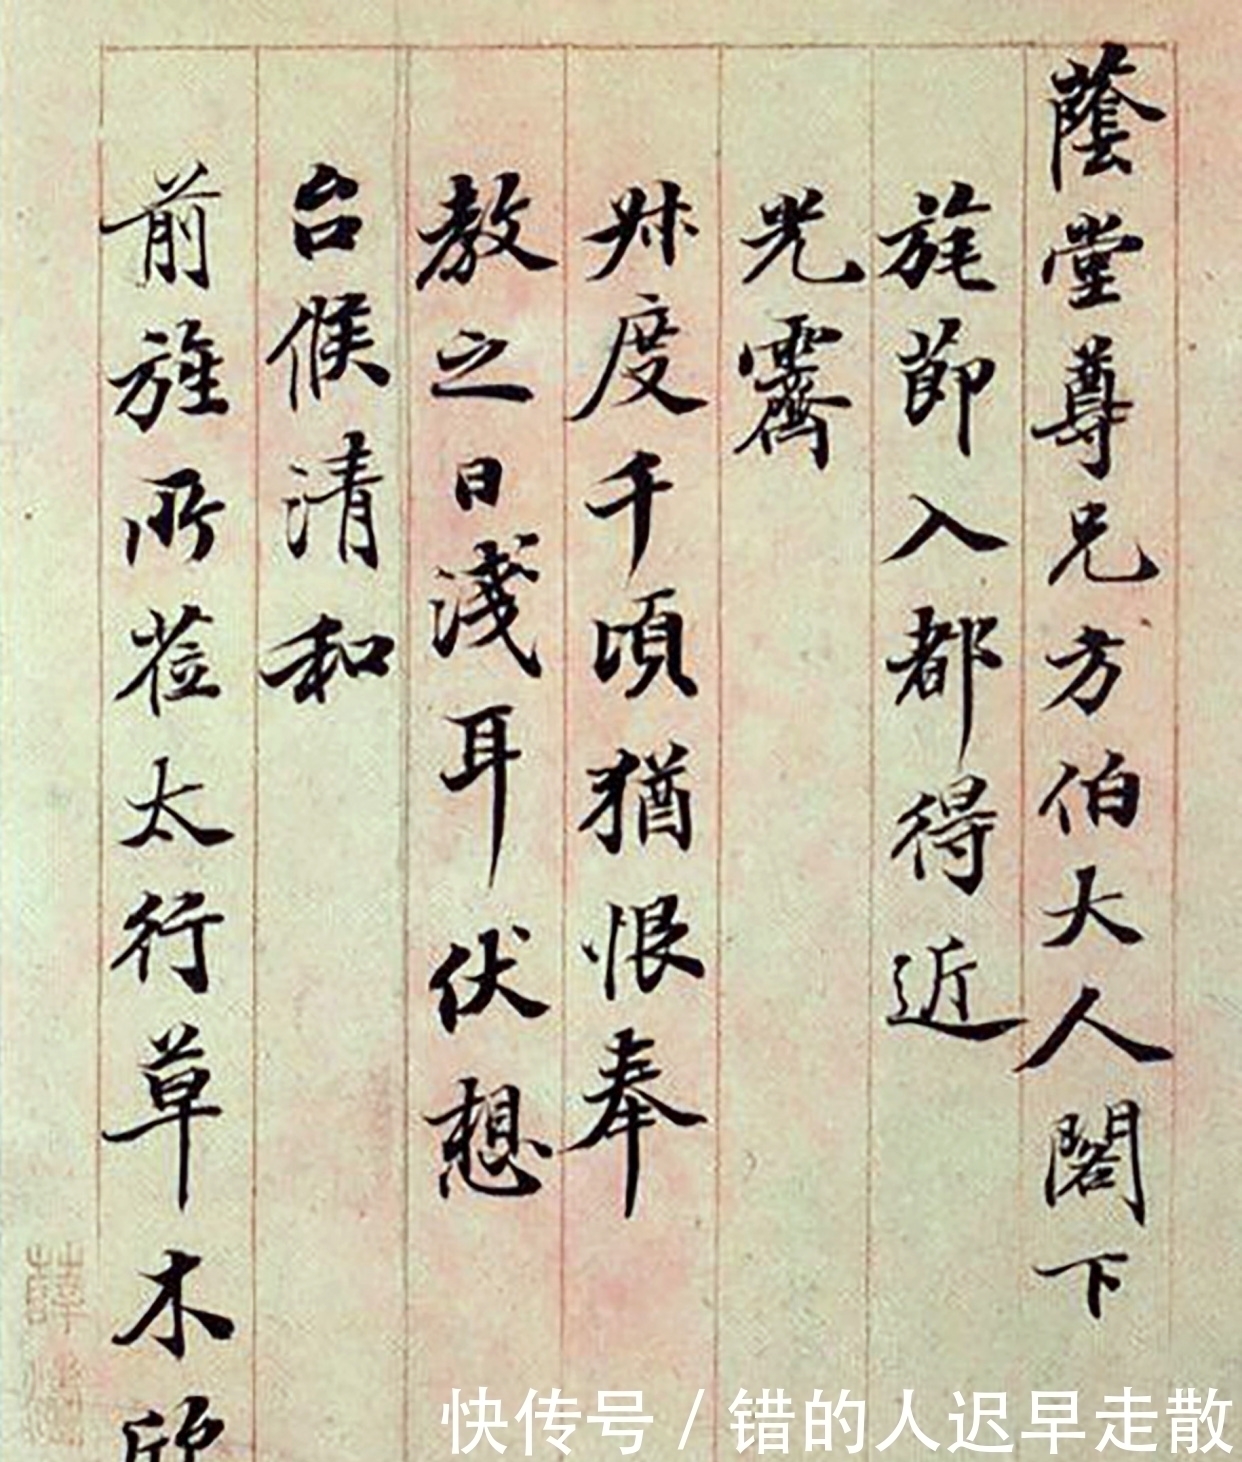 蔭堂尊兄方伯大人閣下
旄節入都得近
光霽
叔度千頃猶恨奉
教之日淺耳伏想
台候清和
前旌所莅太行草木欣
快传号/错的人迟早走散